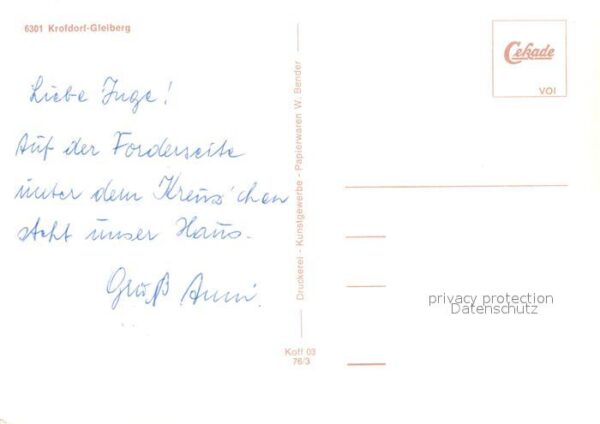 6301 Krofdorf-Gleiberg
Liebe Inge!
Auf der Forderseite
unter dem Kreuz'chen
steht unser Haus.
Gruß Anni.
Druckerei - Kunstgewerbe - Papierwaren W. Bender
Koff 03
76/3
Cekade
VOI
privacy protection
Datenschutz